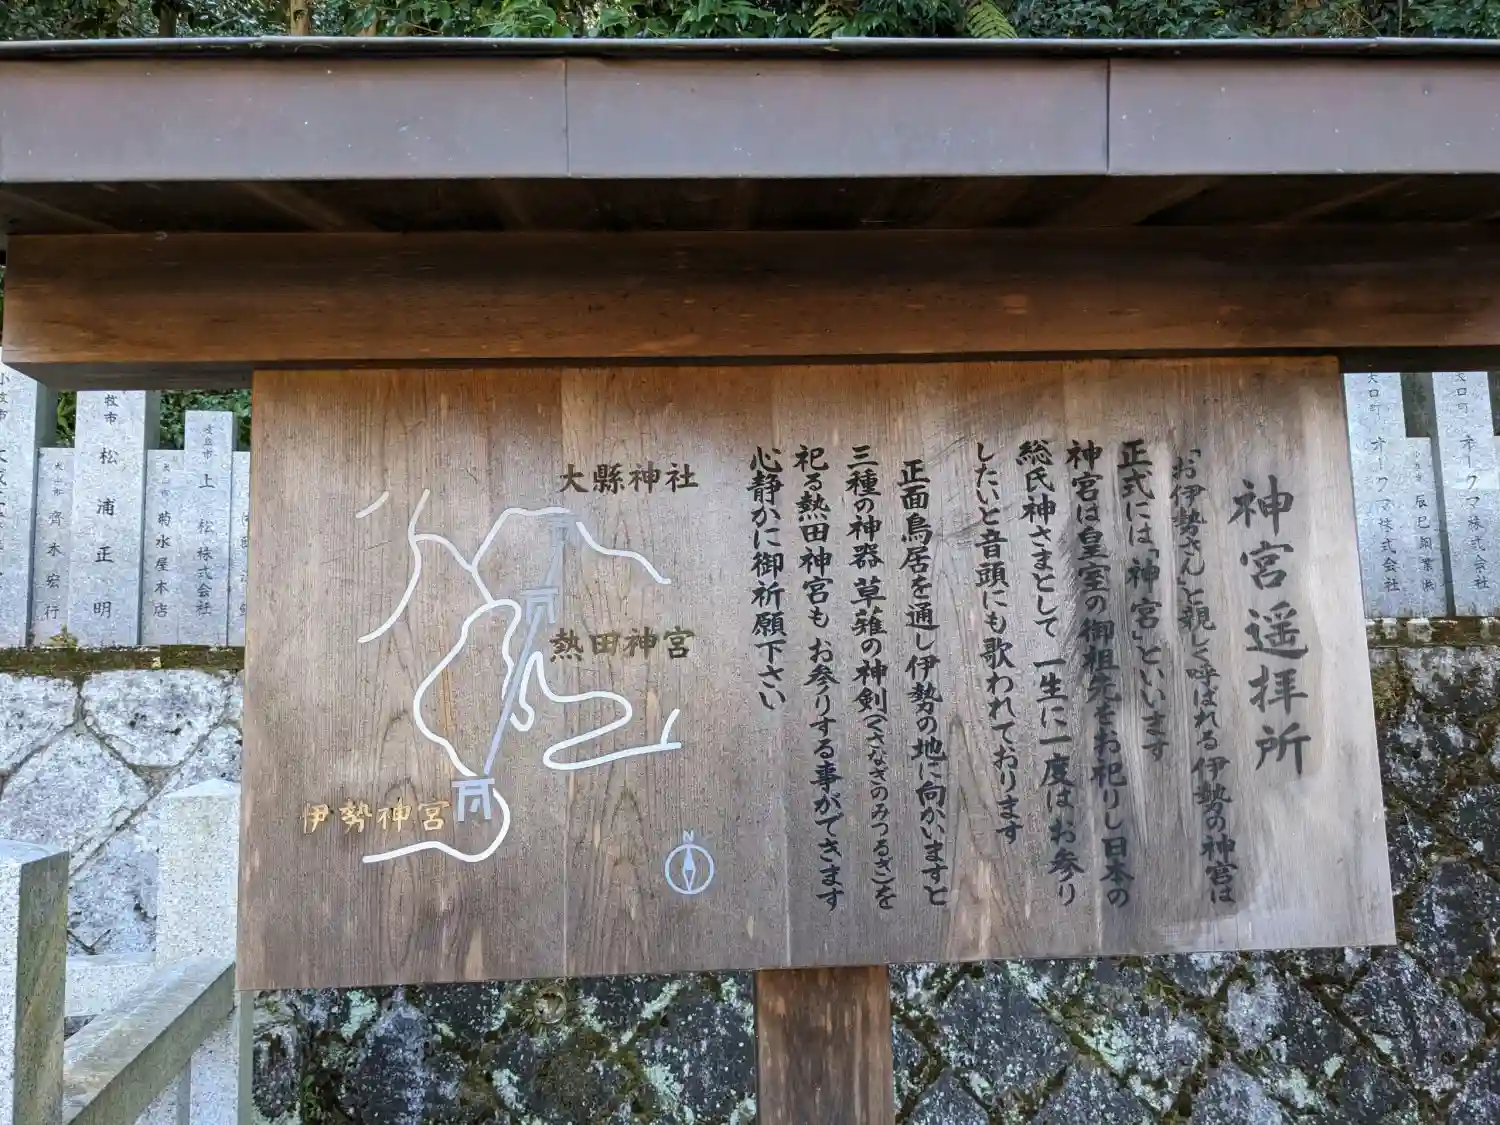 神宮遥拝所
「お伊勢さん」と親しく呼ばれる伊勢の神宮は
正式には「神宮」といいます
神宮は皇室の御祖先をお祀りし日本の
総氏神さまとして 一生に一度はお参り
したいと音頭にも歌われております
正面鳥居を通し伊勢の地に向かいますと
三種の神器 草薙の神剣(くさなぎのみつるぎ)を
祀る熱田神宮も お参りする事ができます
心静かに御祈願下さい
大縣神社
熱田神宮
伊勢神宮
N
牧市 松浦正明
上松株式会社
菊水屋本店
大口町 オークマ株式会社